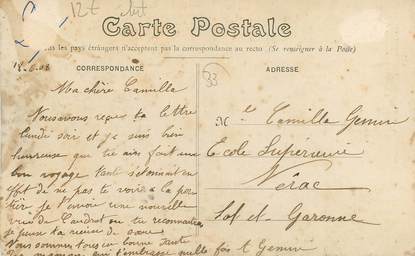 12f
Carte Postale
les pays étrangers n'acceptent pas la correspondance au recto (Se renseigner à la Poste)
CORRESPONDANCE
Ma chère Camilla
Nous avons reçu ta lettre
lundi soir et je suis bien
heureuse que tu aies fait une
bon voyage tante s'étonnait en
effet de ne pas te voir à la
je t'envoie une nouvelle
vue de Caudrot tu reconnaîtras
je pense la
Nous sommes tous en bonne santé
t'embrasse quelle fois G Gemin
33
ADRESSE
Mlle Camilla Gemin
Ecole Supérieure
Nérac
Lot et Garonne